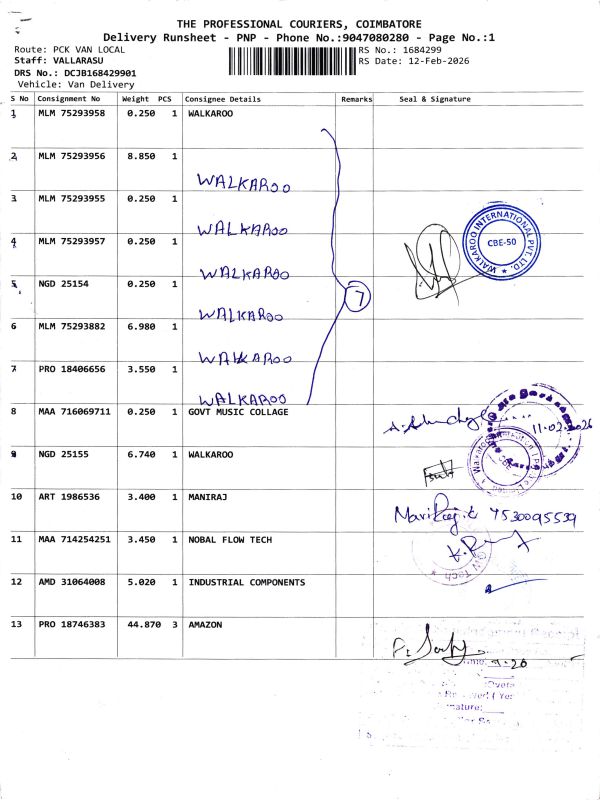 THE PROFESSIONAL COURIERS, COIMBATORE
Delivery Runsheet - PNP - Phone No.:9047080280 - Page No.:1
Route: PCK VAN LOCAL
RS No.: 1684299
Staff: VALLARASU
RS Date: 12-Feb-2026
DRS No.: DCJB168429901
Vehicle: Van Delivery
S No Consignment No Weight PCS Consignee Details Remarks Seal & Signature
1 MLM 75293958 0.250 1 WALKAROO
2 MLM 75293956 8.850 1
WALKAROO
3 MLM 75293955 0.250 1
WALKAROO
4 MLM 75293957 0.250 1
WALKAROO INTERNATIONAL PVT. LTD.
CBE-50
WALKAROO
5 NGD 25154 0.250 1
7
WALKAROO
6 MLM 75293882 6.980 1
WALKAROO
7 PRO 18406656 3.550 1
WALKAROO
8 MAA 716069711 0.250 1 GOVT MUSIC COLLAGE
11-02-2026
9 NGD 25155 6.740 1 WALKAROO
CBE
10 ART 1986536 3.400 1 MANIRAJ
7530095539
11 MAA 714254251 3.450 1 NOBAL FLOW TECH
Tech
12 AMD 31064008 5.020 1 INDUSTRIAL COMPONENTS
13 PRO 18746383 44.870 3 AMAZON
Time: 9.20